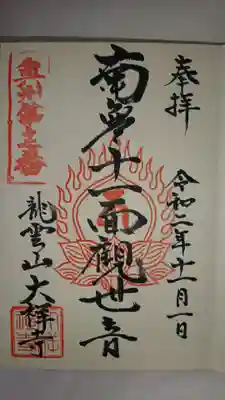 奉拝
令和二年十一月一日
南無十一面観世音
奥州第十一番
龍雲山大祥寺